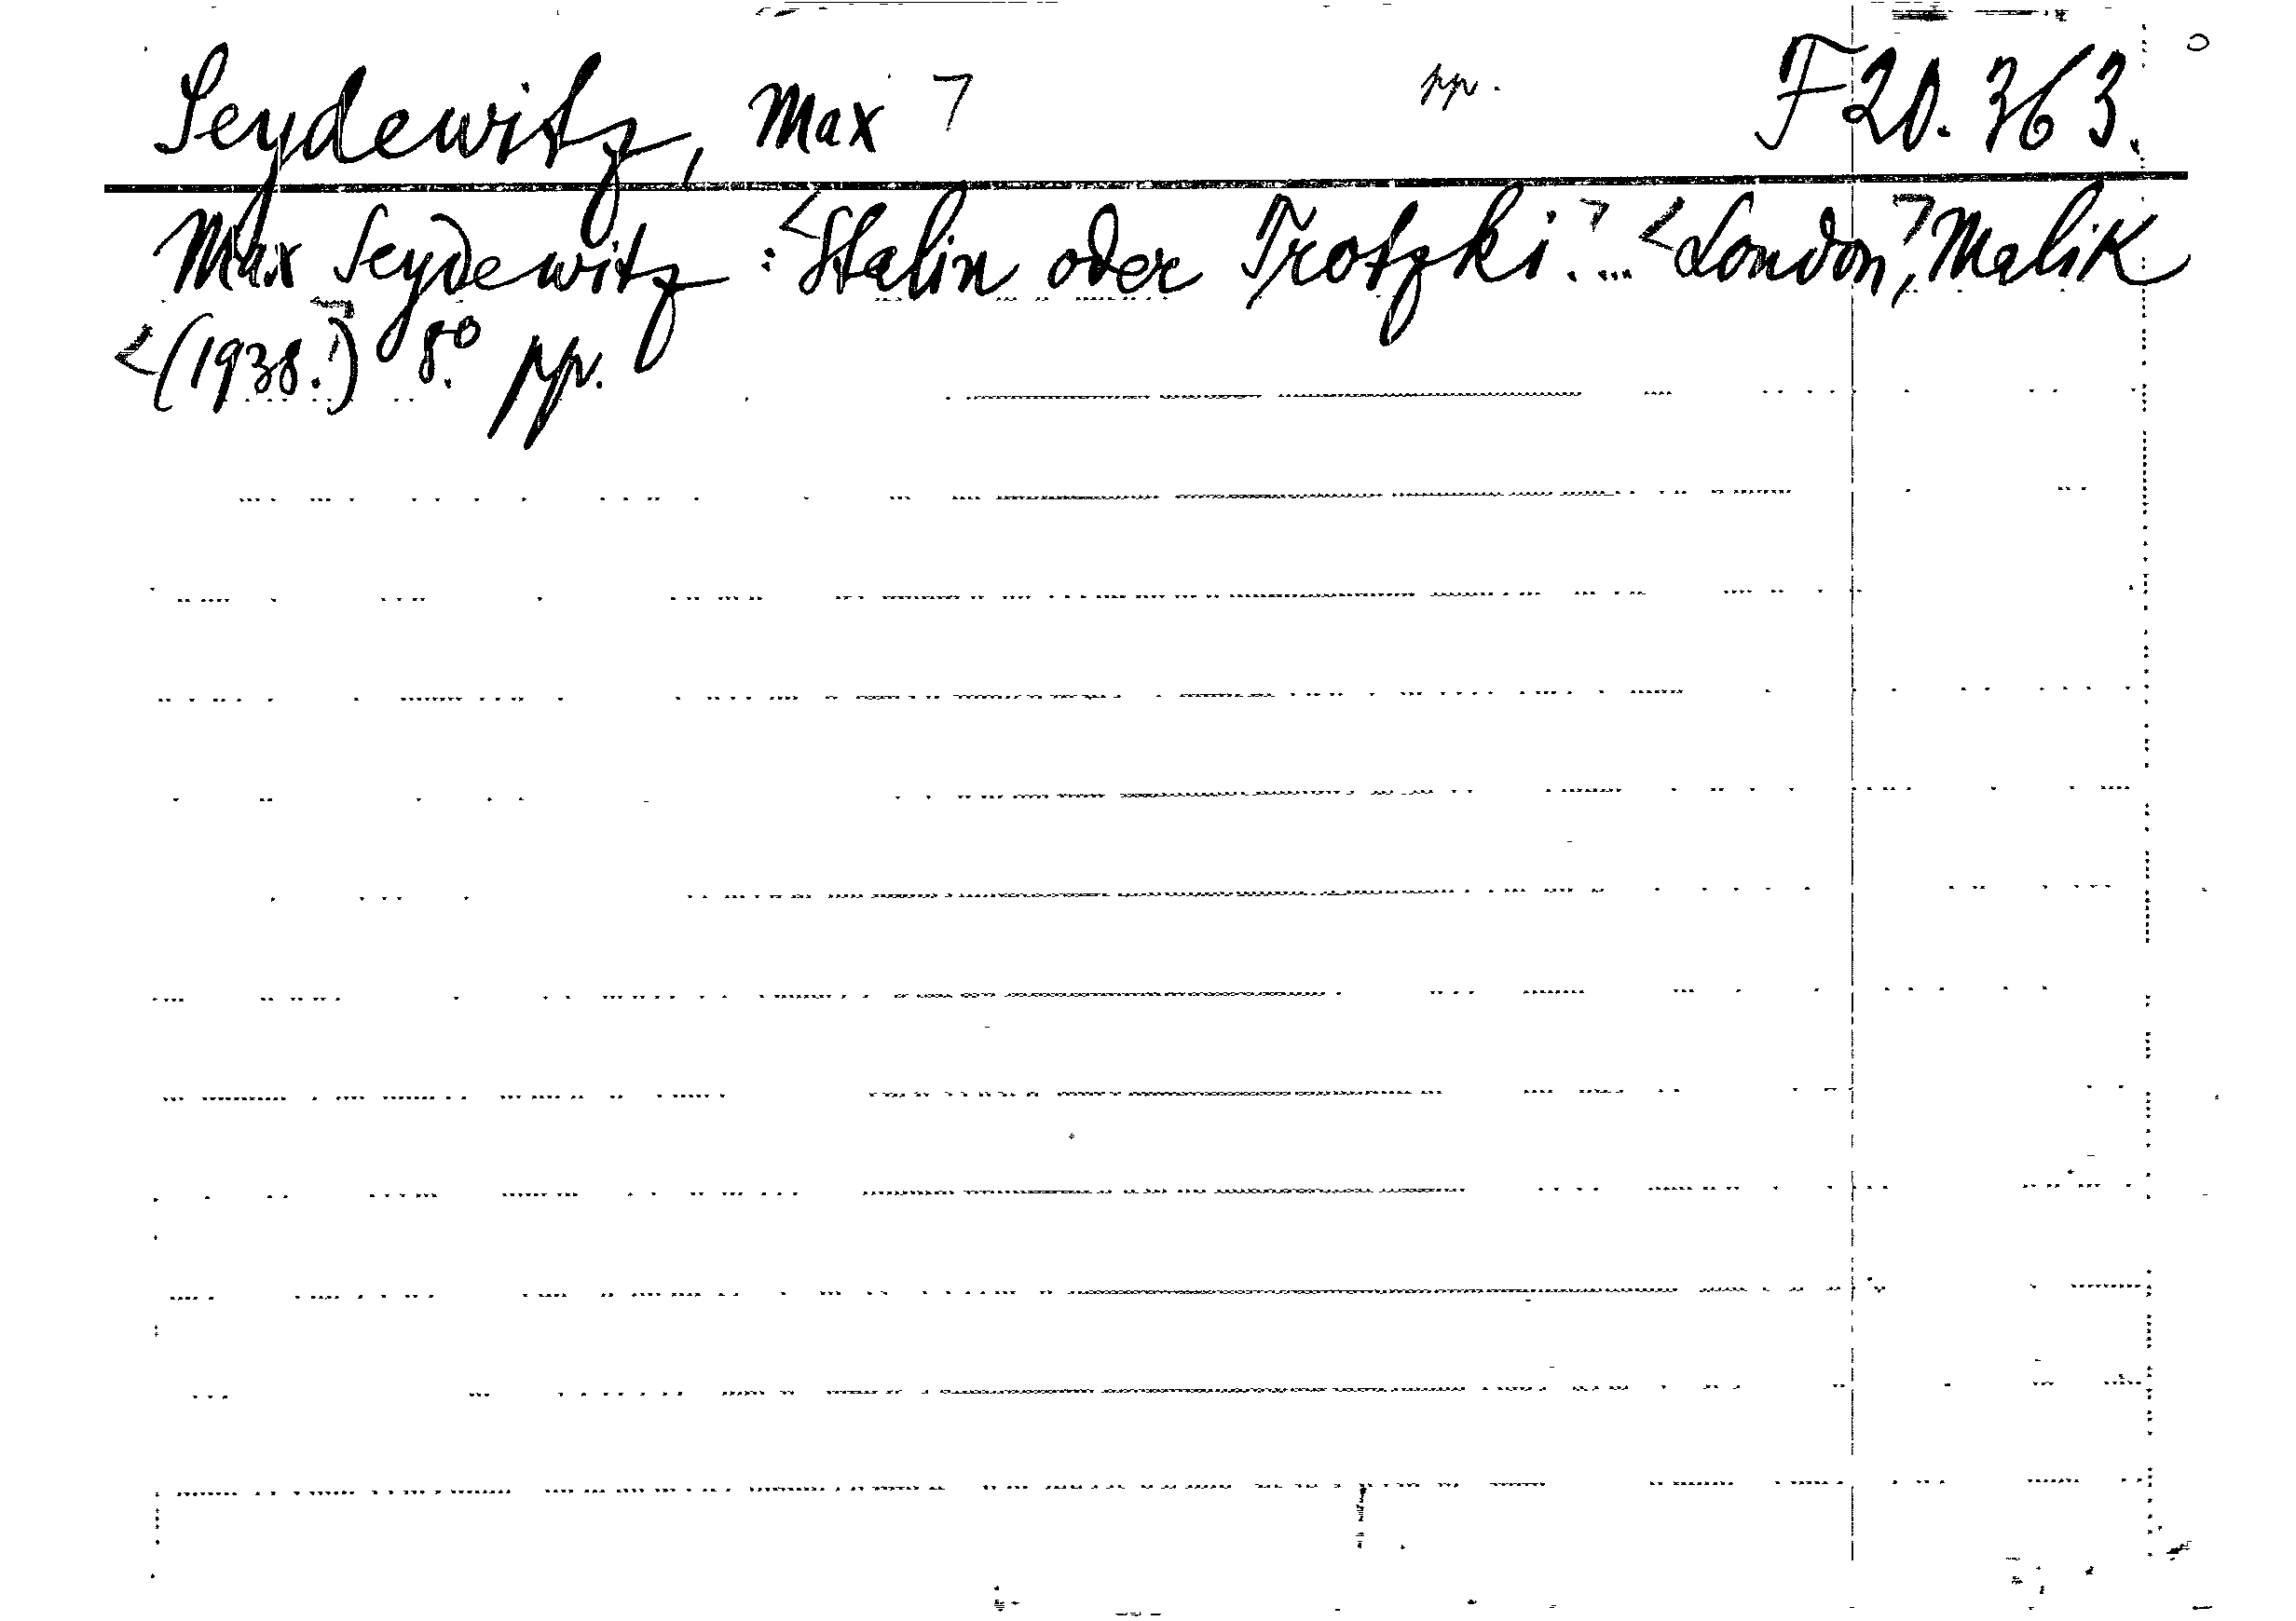 Seydewitz, Max ⌝ pp. F 20.363.
Max Seydewitz: <Stalin oder Trotzki.⌝... <London,⌝ Malik
<(1938.⌝) 8.° pp.